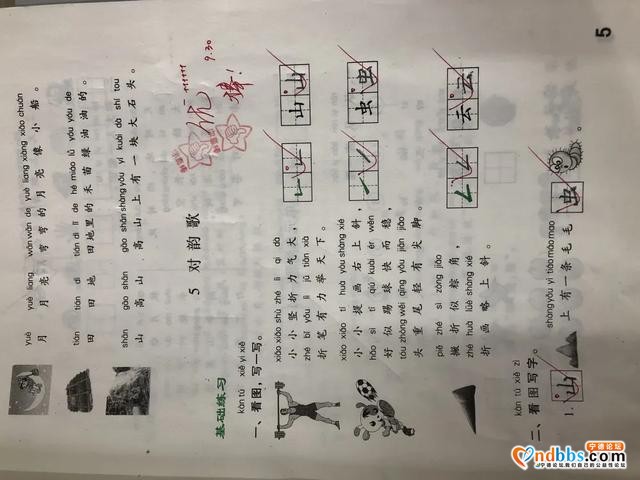 yuè yuè liang wān wān de yuè liang xiàng xiǎo chuán
月 月亮 弯弯的月亮像小船。
tián tián dì tián dì lǐ de hé miáo lǜ yóu yóu de
田 田地 田地里的禾苗绿油油的。
shān gāo shān gāo shān shàng yǒu yí kuài dà shí tou
山 高山 高山上有一块大石头。
优
棒!
9.30
5 对韵歌
基础练习
kàn tú xiě yi xiě
一、看图,写一写。
xiǎo xiǎo shù zhé lì qì dà
小小竖折力气大,
zhé bǐ yǒu lì jǔ tiān xià
折笔有力举天下。
山 山
xiǎo xiǎo tí huà yòu shàng xié
小小提画右上斜,
hǎo sì tī qiú kuài ér wěn
好似踢球快而稳,
tóu zhòng wěi qīng yǒu jiān jiǎo
头重尾轻有尖脚。
虫 虫
piě zhé sì zòng jiǎo
撇折似粽角,
zhé huà lüè shàng xié
折画略上斜。
云 云
kàn tú xiě zì
二、看图写字。
shàng yǒu yì tiáo máo mao
1. 山 上有一条毛毛 虫 。
5
ndbbs.com
宁德论坛 我们自己的公益性论坛